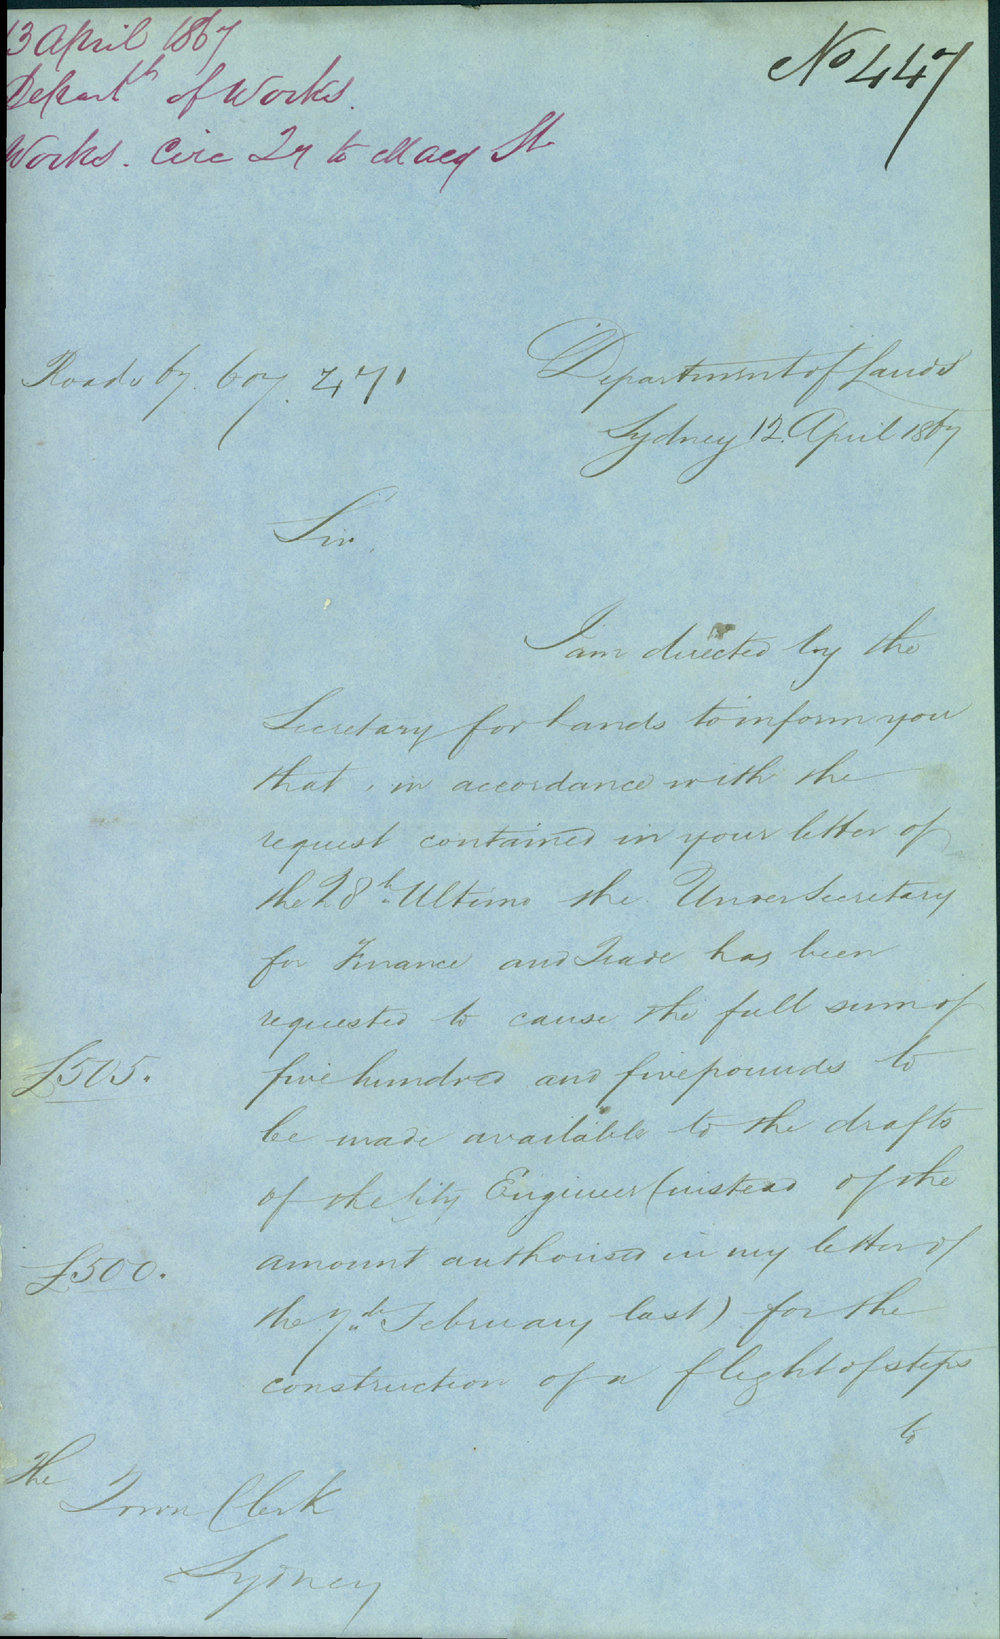 13 April 1867
Departth of Works.
Works. Circ Qy to Macq St
No 447
Roads 67. 607. 471
Department of Lands
Sydney 12. April 1867
Sir,
I am directed by the
Secretary for Lands to inform you
that, in accordance with the
request contained in your letter of
the 28th Ultimo the Under Secretary
for Finance and Trade has been
requested to cause the full sum of
£505.
five hundred and five pounds to
be made available to the drafts
of the City Engineer (instead of the
£500.
amount authorised in my letter of
the 7th February last) for the
construction of a flight of steps
to
The
Town Clerk
Sydney